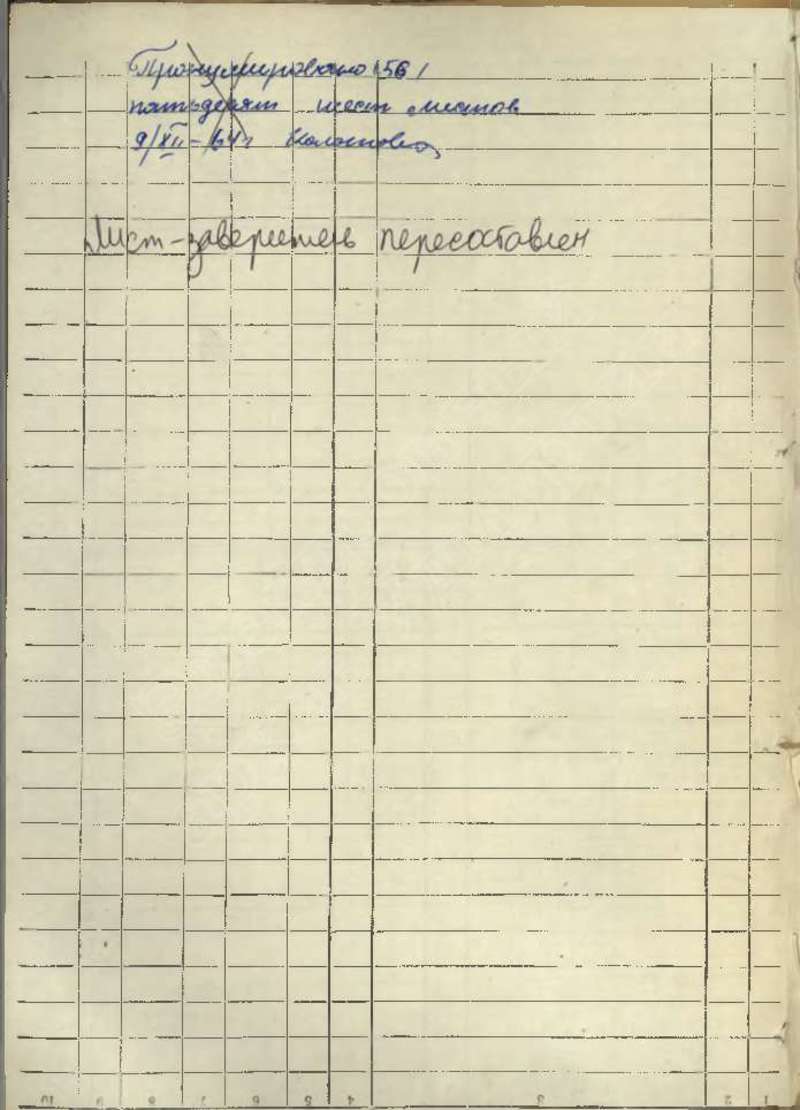 Пронумеровано /56/
пятьдесят шест листов
9/XII-64г
Лист-заверитель пересоставлен
10 9 8 7 6 5 4 3 2 1